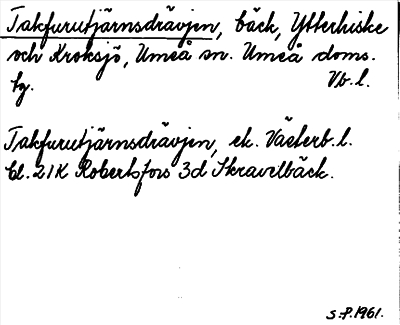 Takfurutjärnsdrävjen, bäck, Ytterhiske
och Kroksjö, Umeå sn. Umeå doms.
sg. Vb.l.
Takfurutjärnsdrävjen, ek. Västerb.l.
bl. 21K Robertsfors 3d Skravelbäck.
S.P. 1961.